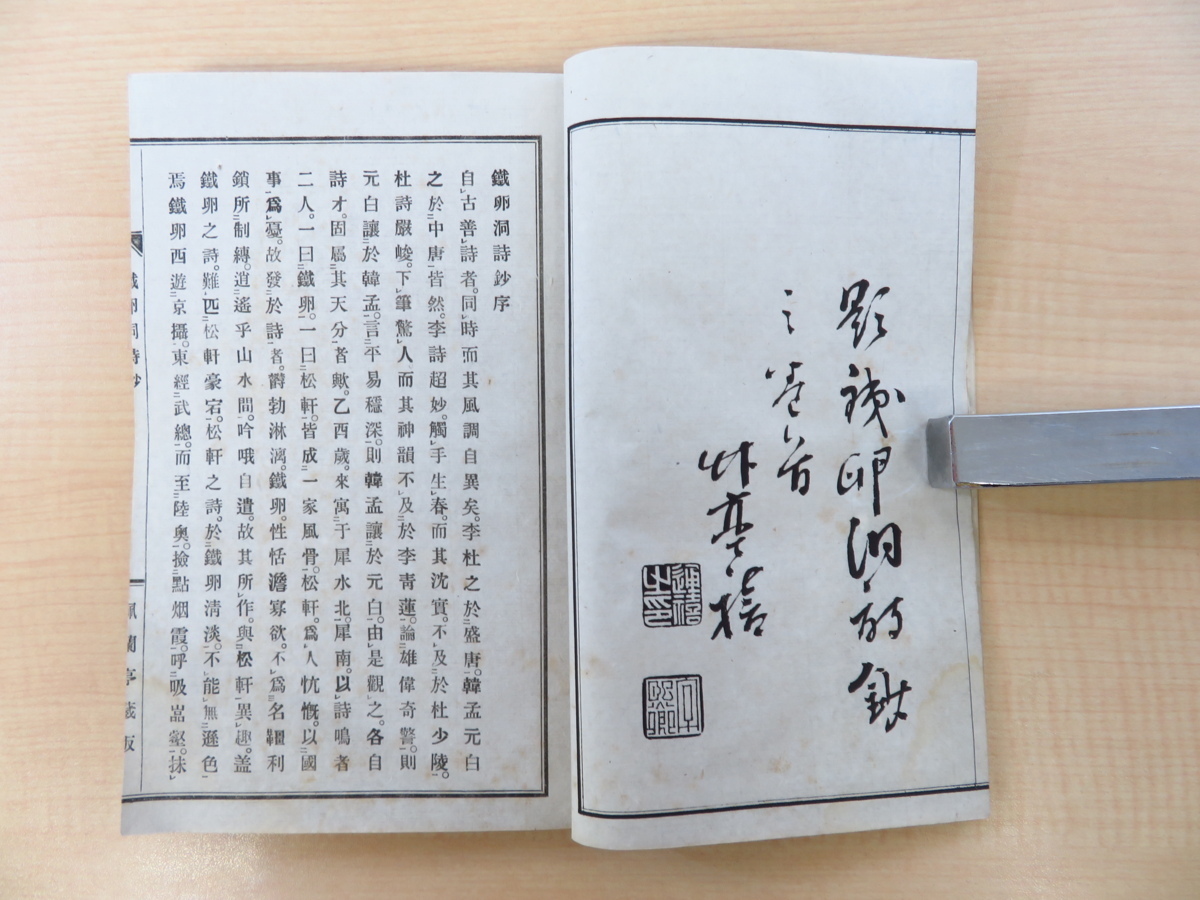 題鐵卵洞詩鈔
之卷首
鐵卵洞詩鈔序
自古善詩者。同時而其風調自異矣。李杜之於盛唐。韓孟元白
之於中唐皆然。李詩超妙。觸手生春。而其沈實。不及於杜少陵。
杜詩嚴峻。下筆驚人而其神韻不及於李青蓮。論雄偉奇警。則
元白讓於韓孟。言平易穩深。則韓孟讓於元白。由是觀之。各自
詩才。固屬其天分者歟。乙酉歲。來寓于犀水北。犀南。以詩鳴者
二人。一曰鐵卵。一曰松軒。皆成一家風骨。松軒。爲人忼慨。以國
事爲憂。故發於詩者。欝勃淋漓。鐵卵。性恬澹寡欲。不爲名韁利
鎖所制縛。逍遙乎山水間。吟哦自遣。故其所作。與松軒異趣。盖
鐵卵之詩。難匹松軒豪宕。松軒之詩。於鐵卵清淡。不能無遜色
焉鐵卵西遊京攝。東經武總。而至陸奥。撿點烟霞。呼吸嵓壑。抹
鐵卵洞詩鈔
蘭亭藏版